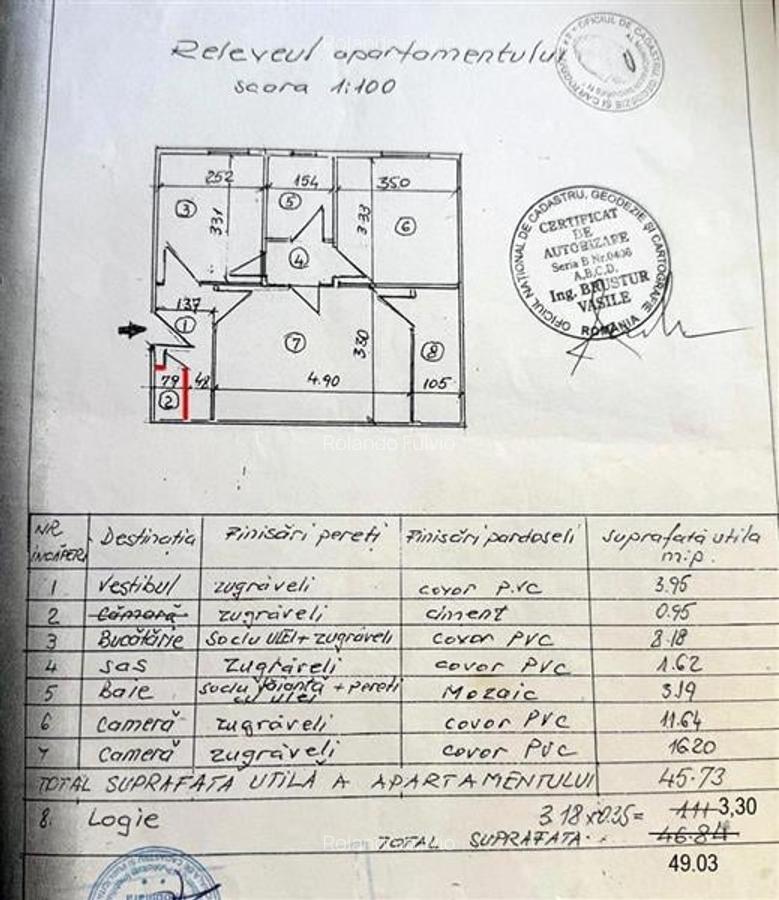 Rolando Fulvio
Releveul apartamentului
scara 1:100
OFICIUL DE CADASTRU GEODEZIE SI CARTOGRAFIE
252
154
350
3
331
5
3.33
6
4
137
1
7
3.30
8
79
48
4.90
105
2
OFICIUL NATIONAL DE CADASTRU, GEODEZIE SI CARTOGRAFIE
CERTIFICAT
DE
AUTORIZARE
Seria B Nr.0406
A.B.C.D.
Ing. BRUSTUR
VASILE
ROMANIA
Rolando Fulvio
NR. ÎNCĂPERI Destinația Finisări pereți Finisări pardoseli suprafată utila m.p.
1 Vestibul zugrăveli covor PVC 3.95
2 Cămară zugrăveli ciment 0.95
3 Bucătărie sociu ULEI + zugrăveli covor PVC 8.18
4 sas zugrăveli covor PVC 1.62
5 Baie sociu faianță + pereti cu ulei Mozaic 3.19
6 Cameră zugrăveli covor PVC 11.64
7 Cameră zugrăveli covor PVC 16.20
TOTAL SUPRAFATA UTILĂ A APARTAMENTULUI 45.73
8. Logie 3.18 x 0.35 = 1.11 3,30
TOTAL SUPRAFATA 46.84
Rolando Fulvio
49.03